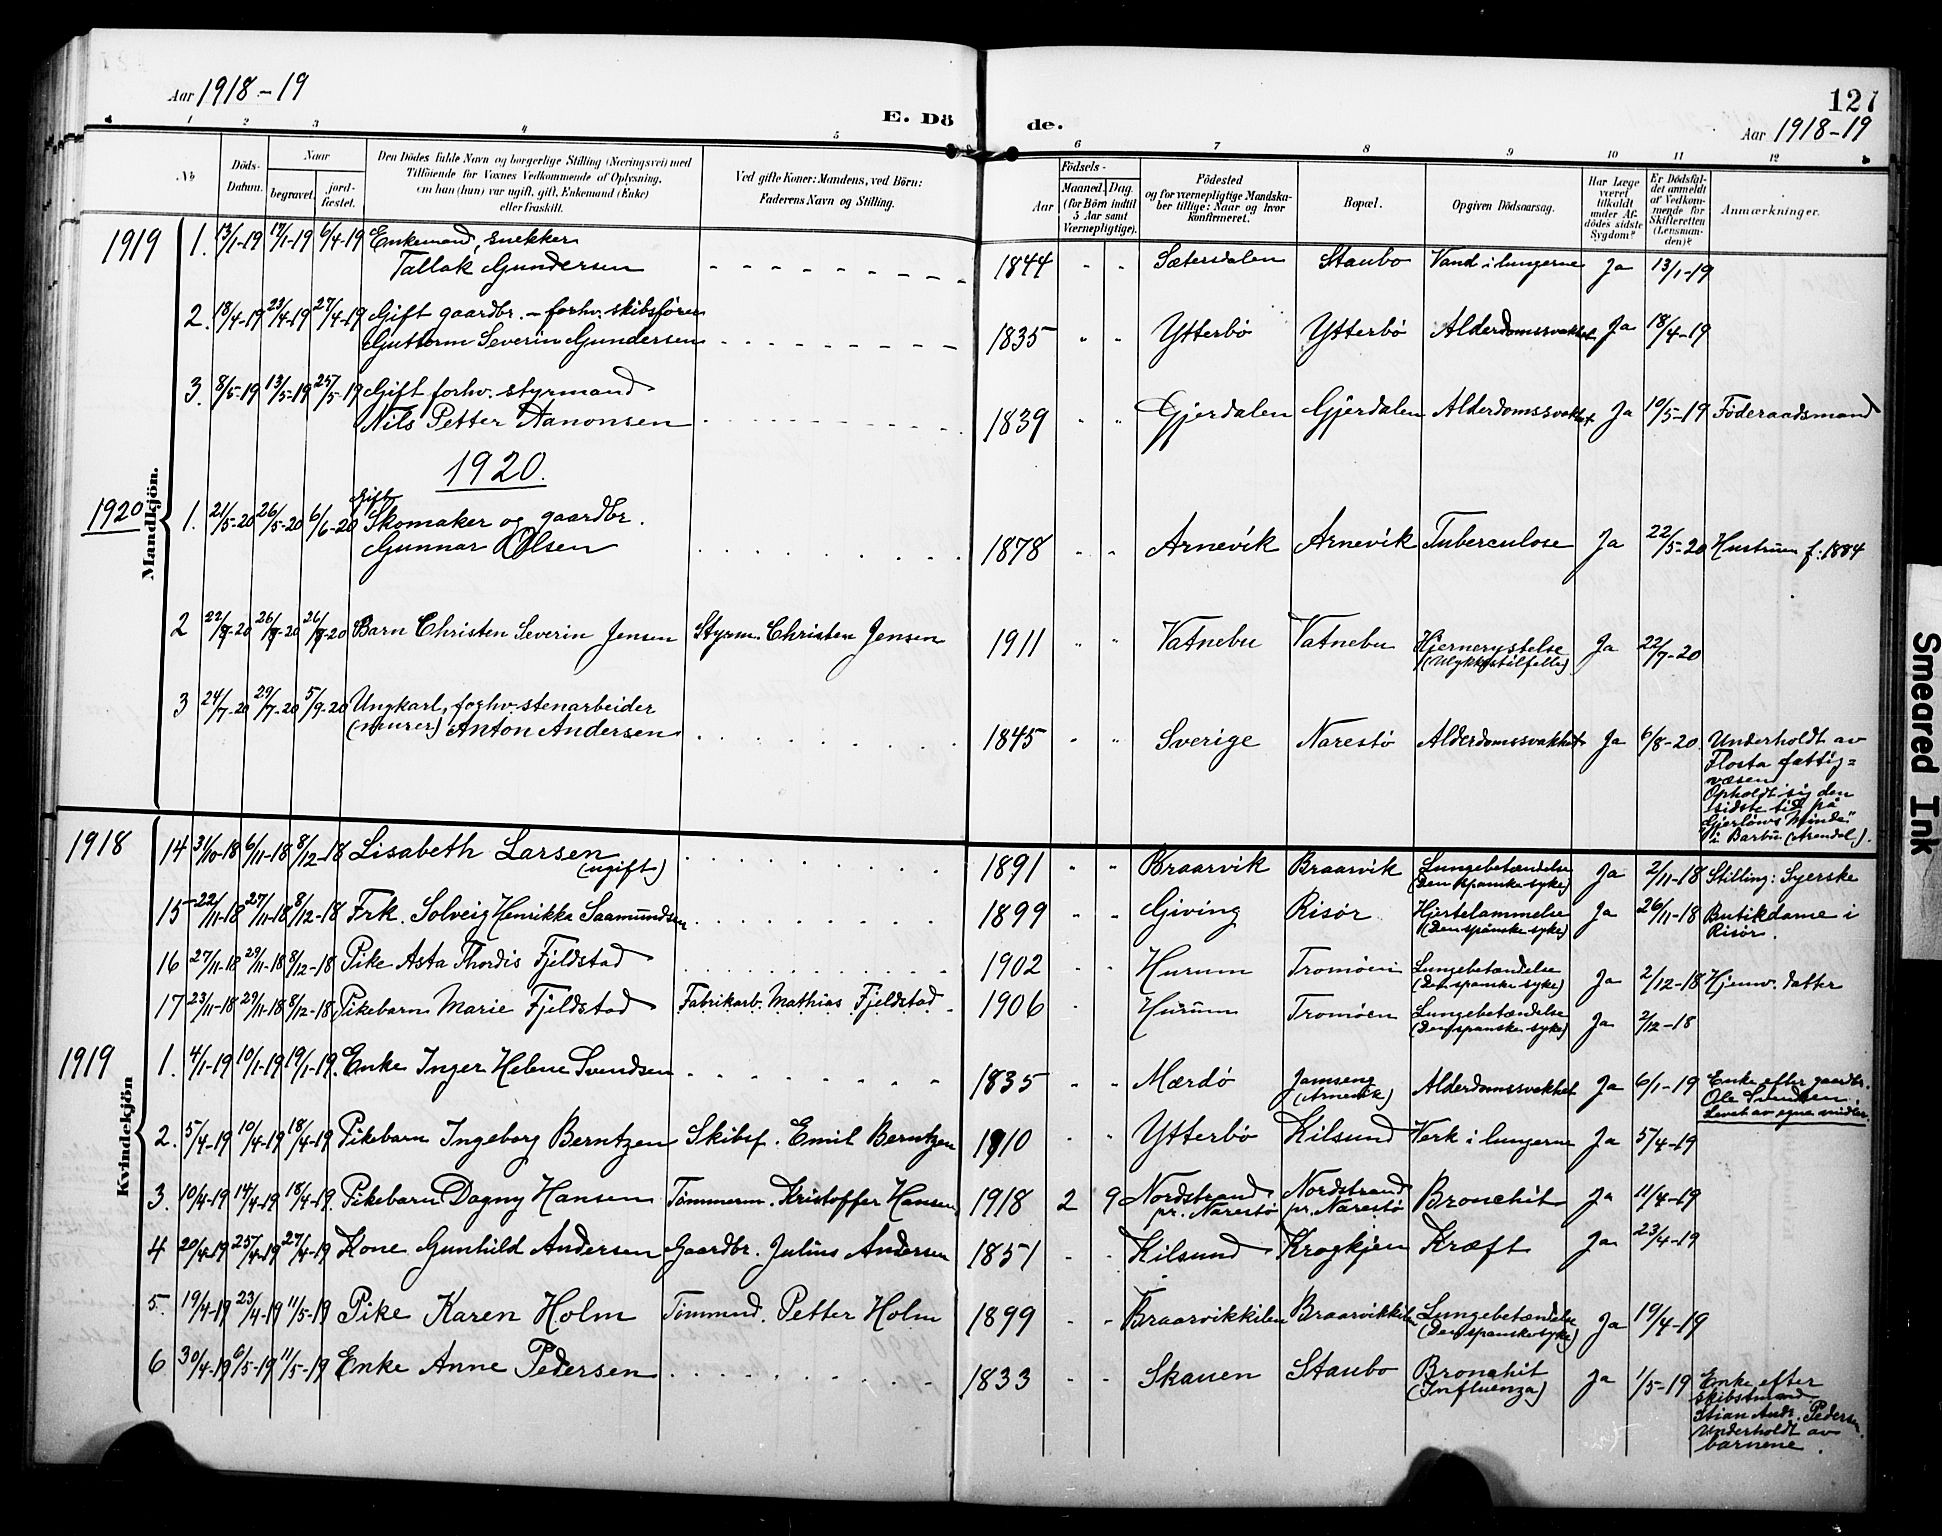 Aar 1918-19
E. Dö
de.
127
Aar 1918-19
1 2 3 4 5 6 7 8 9 10 11 12
No
Döds-Datum.
Naar
begravet.
jord-fæstet.
Den Dödes fulde Navn og borgerlige Stilling (Næringsvei) med
Tilföiende for Voxnes Vedkommende af Oplysning,
om han (hun) var ugift, gift, Enkemand (Enke)
eller fraskilt.
Ved gifte Koner: Mandens, ved Börn:
Faderens Navn og Stilling.
Födsels-
Aar
Maaned. Dag.
(for Börn indtil
5 Aar samt
Værnepligtige).
Födested
og for værnepligtige Mandska-
ber tillige: Naar og hvor
konfirmeret.
Bopæl.
Opgiven Dödsaarsag.
Har Læge
været
tilkaldt
under Af-
dödes sidste
Sygdom?
Er Dödsfal-
det anmeldt
af Vedkom-
mende for
Skifteretten
(Lensman-
den)?
Anmærkninger.
Mandkjön.
1919 1. 13/1-19 17/1-19 6/4-19 Enkemand, snekker
Tallak Gundersen 1844 Sætersdalen Staubo Vand i lungerne Ja 13/1-19
2. 18/4-19 23/4-19 27/4-19 Gift gaardbr. - forhv. skibsfører
Guttorm Severin Gundersen 1835 Ytterbö Ytterbö Alderdomssvakhet Ja 18/4-19
3. 8/5-19 13/5-19 25/5-19 Gift forhv. styrmand
Nils Petter Aanonsen 1839 Gjerdalen Gjerdalen Alderdomssvakhet Ja 10/5-19 Föderaadsmand
1920.
1920 1. 21/5-20 26/5-20 6/6-20 Gift
Skomaker og gaardbr.
Gunnar Olsen 1878 Arnevik Arnevik Tuberculose Ja 22/5-20 Hustruen f. 1884
2 22/7-20 26/7-20 26/7-20 Barn Christen Severin Jensen Styrm. Christen Jensen 1911 Vatnebu Vatnebu Hjernerystelse
(Ulykkestilfelle) Ja 22/7-20
3 24/7-20 29/7-20 5/9-20 Ungkarl, forhv. stenarbeider
(murer) Anton Andersen 1845 Sverige Narestö Alderdomssvakhet Ja 6/8-20 Underholdt av
Flosta fattig=
væsen
Opholdt sig den
sidste tid på
"Gjerlöws Minde"
i Barbu (Arendal).
Kvindekjön
1918 14 31/10-18 6/11-18 8/12-18 Lisabeth Larsen
(ugift) 1891 Braarvik Braarvik Lungebetændelse
(Den spanske syke) Ja 2/11-18 Stilling: Syerske
15 22/11-18 27/11-18 8/12-18 Frk. Solveig Henrikka Saamundsen 1899 Giving Risör Hjertelammelse
(Den spanske syke) Ja 26/11-18 Butikdame i
Risör.
16 27/11-18 29/11-18 8/12-18 Pike Asta Thordis Fjeldstad 1902 Hurum Tromöen Lungebetændelse
(Den spanske syke) Ja 2/12-18 Hjemv. datter
17 23/11-18 29/11-18 8/12-18 Pikebarn Marie Fjeldstad Fabrikarb. Mathias Fjeldstad 1906 Hurum Tromöen Lungebetændelse
(Den spanske syke) Ja 2/12-18
1919 1. 4/1-19 10/1-19 19/1-19 Enke Inger Helene Svendsen 1835 Mærdö
(Arnevik) Alderdomssvakhet Ja 6/1-19 Enke efter gaardbr.
Ole Svendsen.
Levet av egne midler.
2. 5/4-19 10/4-19 18/4-19 Pikebarn Ingeborg Berntzen Skibsf. Emil Berntzen 1910 Ytterbö Kilsund Verk i lungerne Ja 5/4-19
3. 10/4-19 14/4-19 18/4-19 Pikebarn Dagny Hansen Tömmerm. Kristoffer Hansen 1918 2 9 Nordstrand
pr. Narestö Nordstrand
pr. Narestö Bronchit Ja 11/4-19
4 20/4-19 25/4-19 27/4-19 Kone Gunhild Andersen Gaardbr. Julius Andersen 1851 Kilsund Krogkjen Kræft Ja 23/4-19
5. 19/4-19 23/4-19 11/5-19 Pike Karen Holm Tömmmd. Petter Holm 1899 Braarvikkilen Braarvikkilen Lungebetændelse
(Den spanske syke) Ja 19/4-19
6 30/4-19 6/5-19 11/5-19 Enke Anne Pedersen 1833 Skauen Staubo Bronchit
(Influenza) Ja 1/5-19 Enke efter
skibstmand
Stian Andr. Pedersen.
Underholdt av
barnene.
Smeared Ink